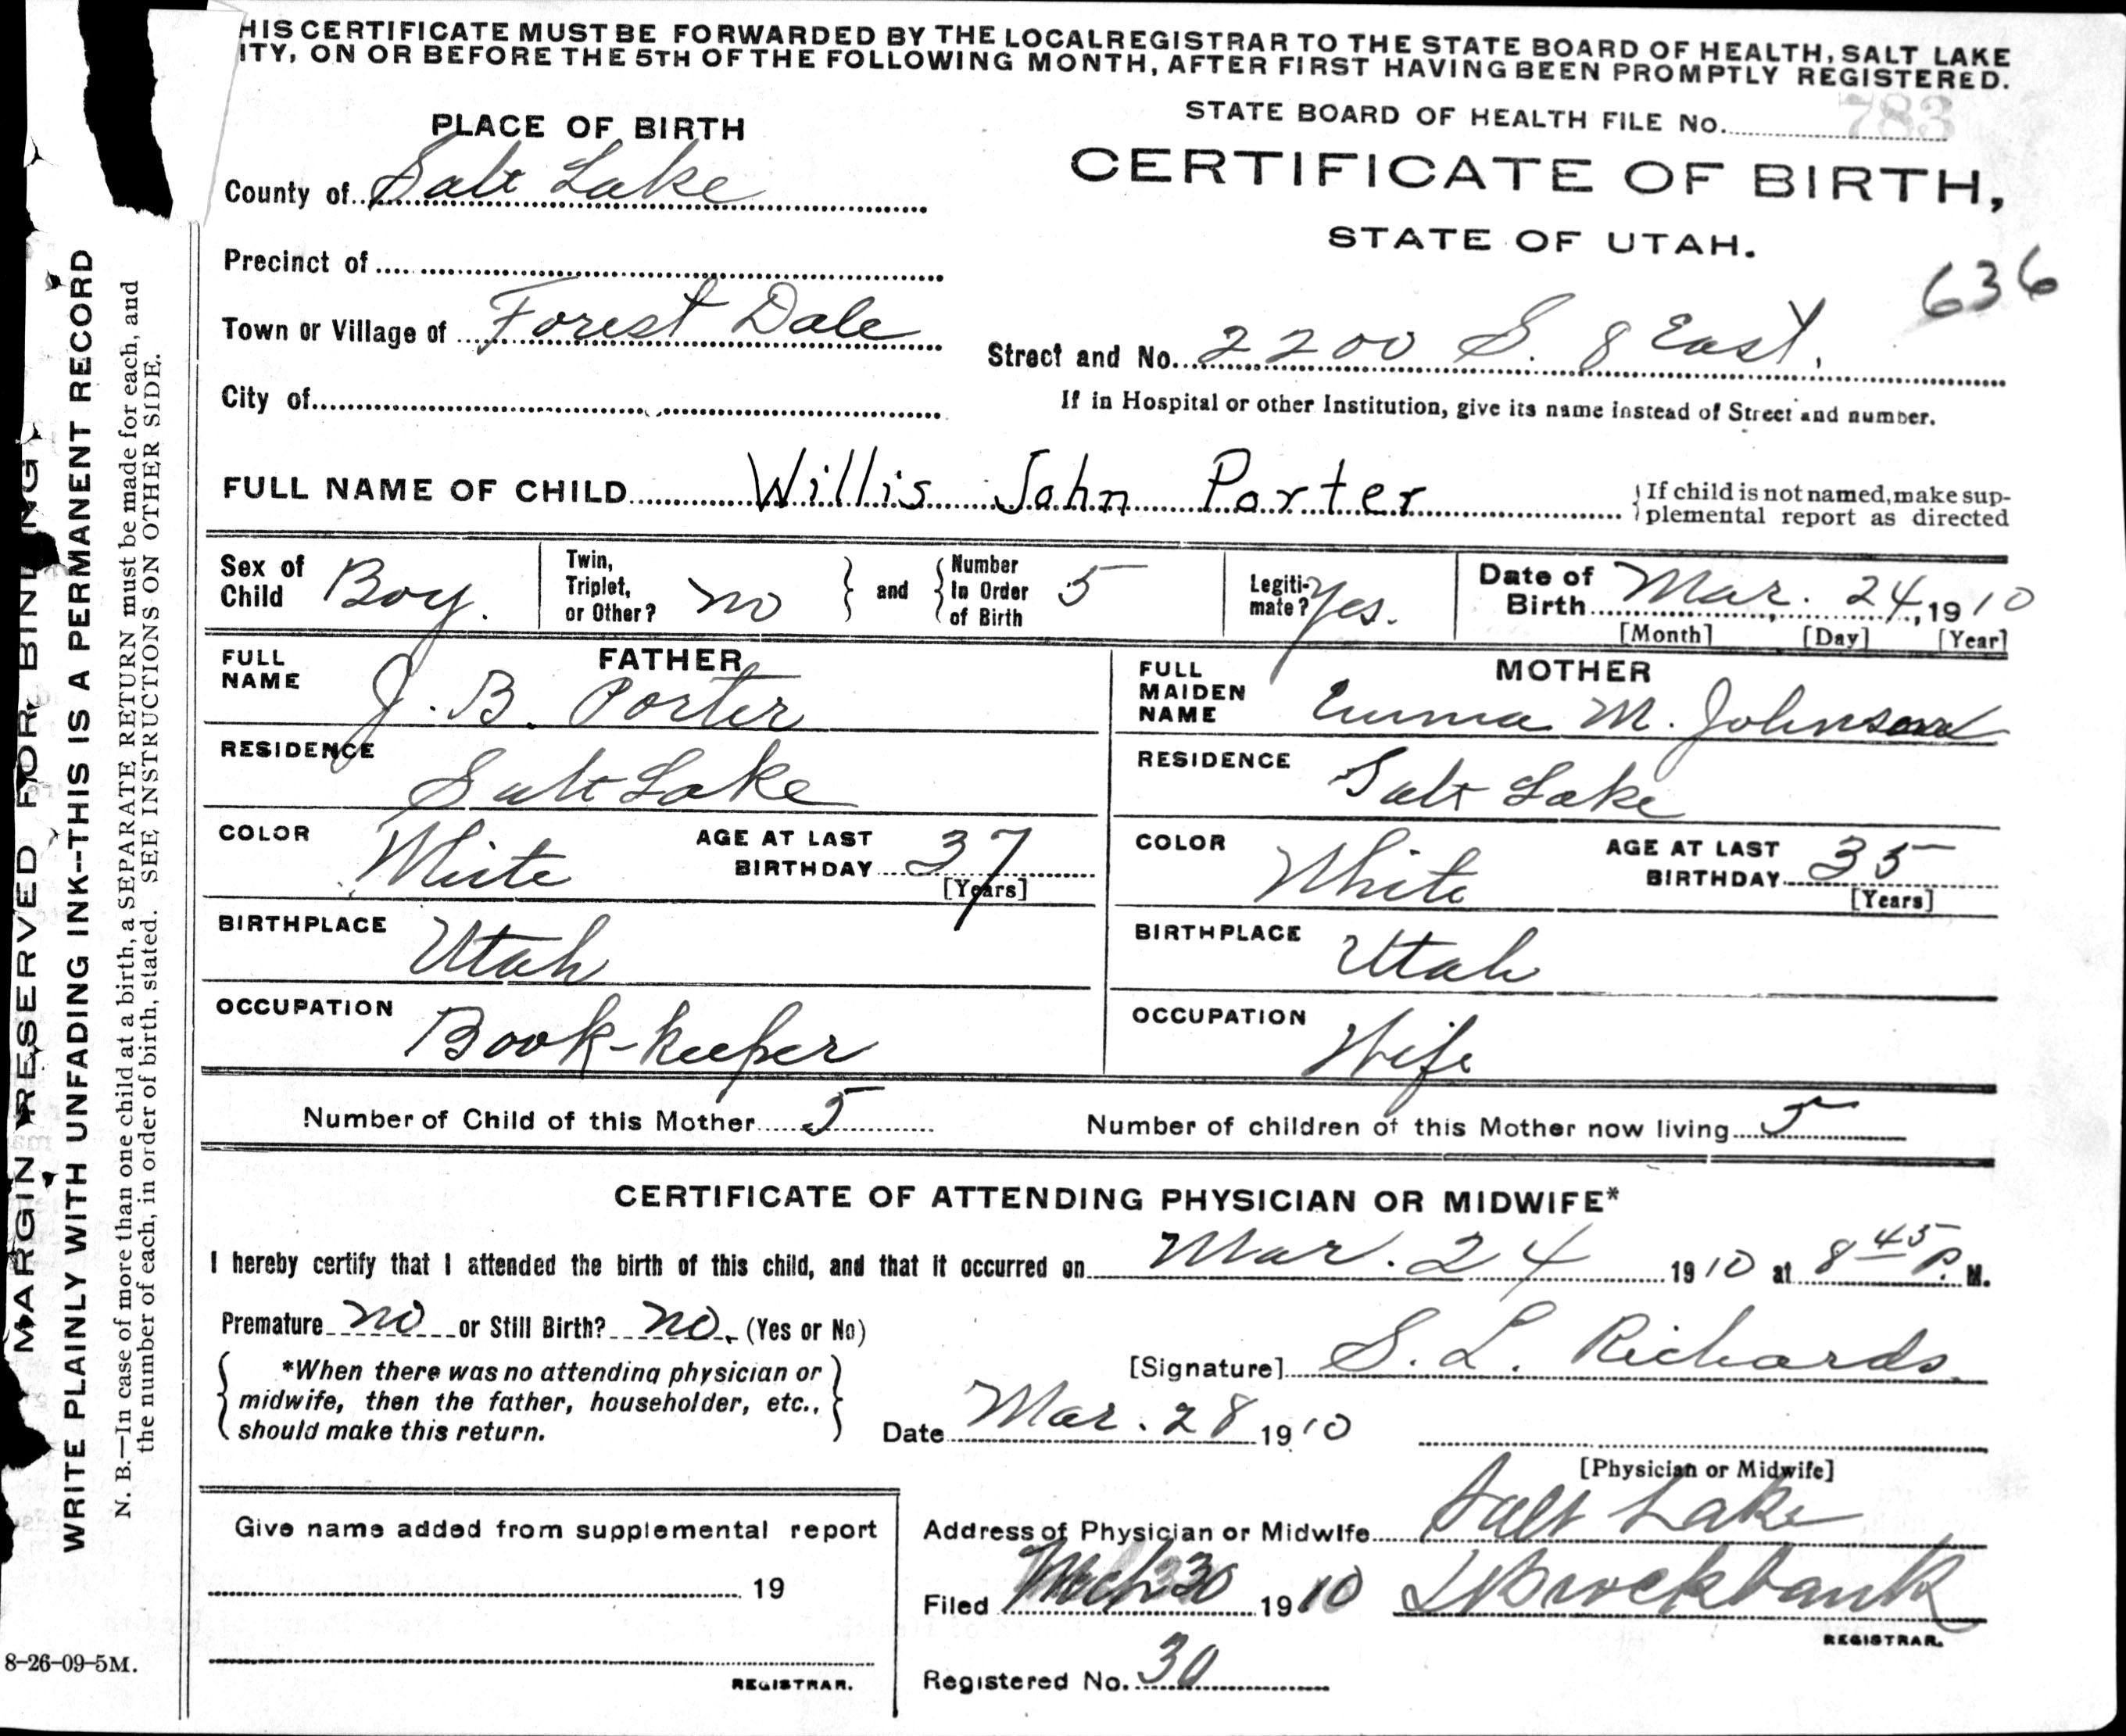 HIS CERTIFICATE MUST BE FORWARDED BY THE LOCAL REGISTRAR TO THE STATE BOARD OF HEALTH, SALT LAKE
ITY, ON OR BEFORE THE 5TH OF THE FOLLOWING MONTH, AFTER FIRST HAVING BEEN PROMPTLY REGISTERED.
STATE BOARD OF HEALTH FILE No. 783
PLACE OF BIRTH
CERTIFICATE OF BIRTH,
STATE OF UTAH.
636
County of Salt Lake
Precinct of
Town or Village of Forest Dale
Street and No. 2200 S. 8 East.
City of
If in Hospital or other Institution, give its name instead of Street and number.
FULL NAME OF CHILD Willis John Porter
If child is not named, make sup-
plemental report as directed
Sex of Child Boy.
Twin, Triplet, or Other? no
and Number In Order of Birth 5
Legiti-mate? Yes.
Date of Birth Mar. 24, 1910
[Month] [Day] [Year]
FATHER
FULL NAME J. B. Porter
RESIDENCE Salt Lake
COLOR White
AGE AT LAST BIRTHDAY 37
[Years]
BIRTHPLACE Utah
OCCUPATION Book-keeper
MOTHER
FULL MAIDEN NAME Emma M. Johnson
RESIDENCE Salt Lake
COLOR White
AGE AT LAST BIRTHDAY 35
[Years]
BIRTHPLACE Utah
OCCUPATION Wife
Number of Child of this Mother 5
Number of children of this Mother now living 5
CERTIFICATE OF ATTENDING PHYSICIAN OR MIDWIFE*
I hereby certify that I attended the birth of this child, and that it occurred on Mar. 24 1910 at 8 45 P. M.
Premature no or Still Birth? no. (Yes or No)
*When there was no attending physician or
midwife, then the father, householder, etc.,
should make this return.
[Signature] S. L. Richards
Date Mar. 28 1910
[Physician or Midwife]
Address of Physician or Midwife Salt Lake
Filed Mch 30 1910 Brockbank
REGISTRAR.
Registered No. 30
Give name added from supplemental report
19
REGISTRAR.
8-26-09-5M.
MARGIN RESERVED FOR BINDING
WRITE PLAINLY WITH UNFADING INK--THIS IS A PERMANENT RECORD
N. B.—In case of more than one child at a birth, a SEPARATE RETURN must be made for each, and
the number of each, in order of birth, stated. SEE INSTRUCTIONS ON OTHER SIDE.